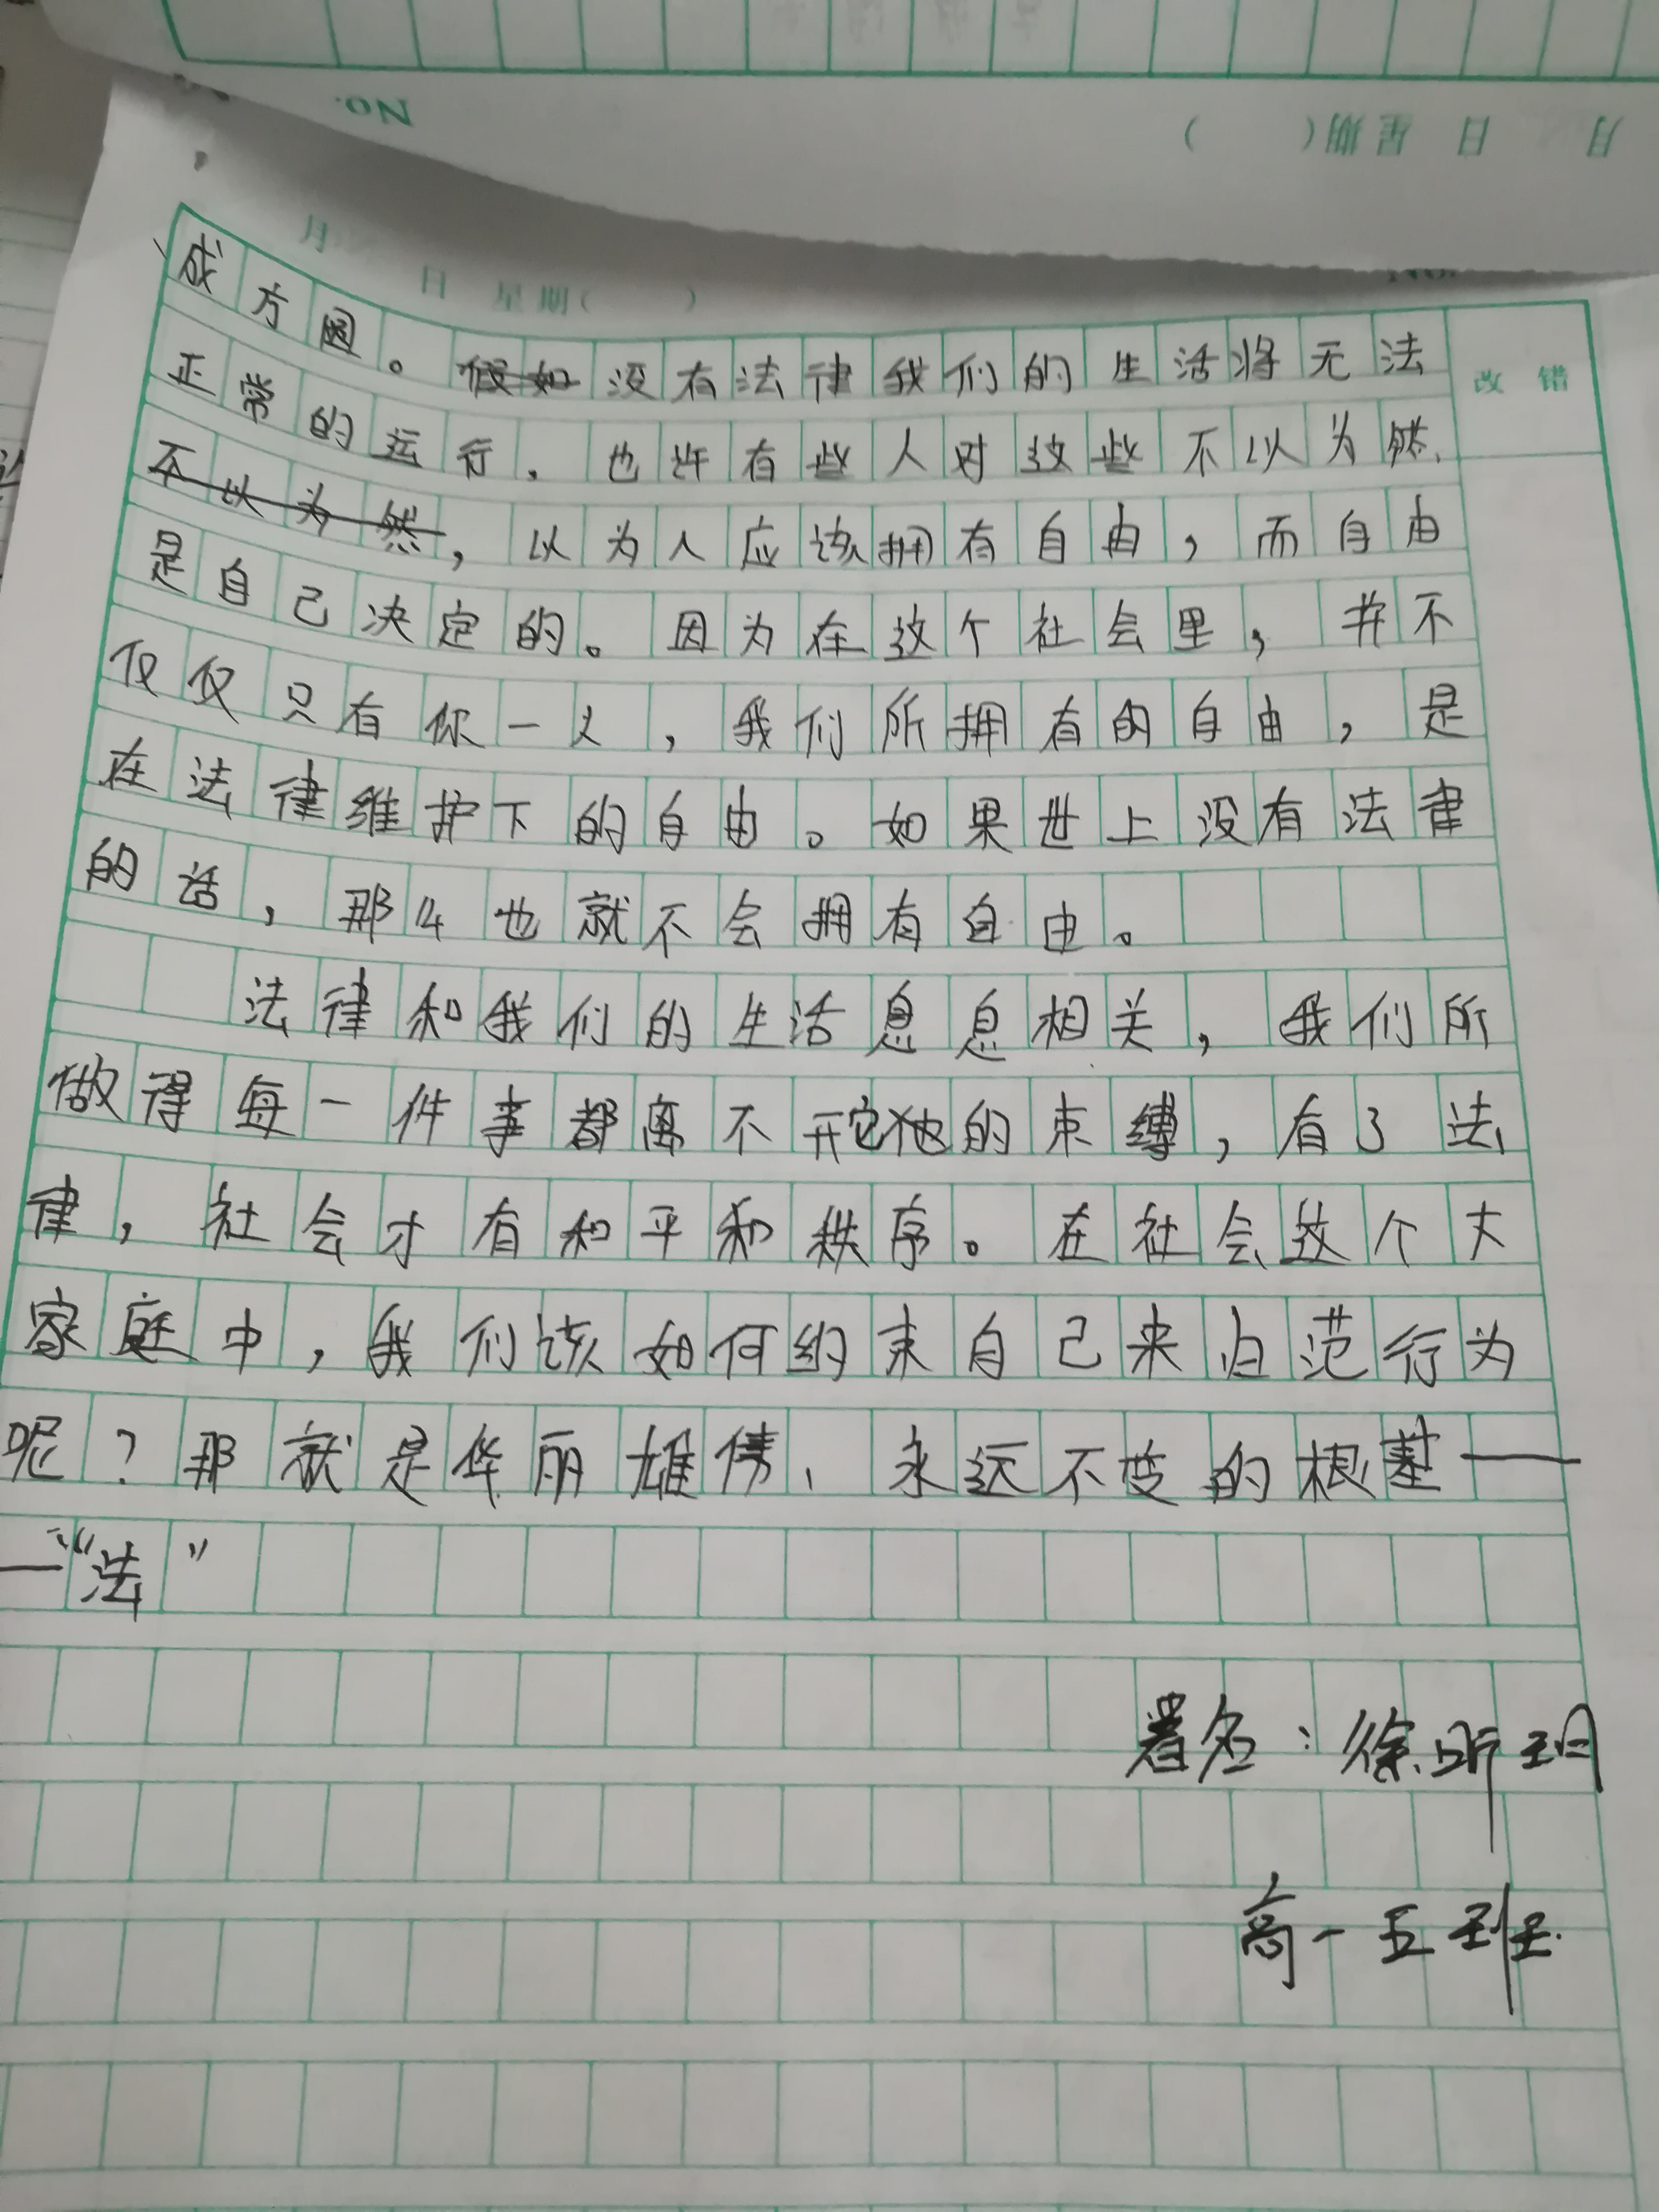 No.
月 日 星期( )
月 日 星期( )
成方圆。假如没有法律我们的生活将无法
改 错
正常的运行，也许有些人对这些不以为然、
不以为然，以为人应该拥有自由，而自由
是自己决定的。因为在这个社会里，并不
仅仅只有你一人，我们所拥有的自由，是
在法律维护下的自由。如果世上没有法律
的话，那么也就不会拥有自由。
法律和我们的生活息息相关，我们所
做得每一件事都离不开它他的束缚，有了法
律，社会才有和平和秩序。在社会这个大
家庭中，我们该如何约束自己来归范行为
呢？那就是华丽雄伟、永远不变的根基—
—“法”
署名：徐昕玥
高一五班